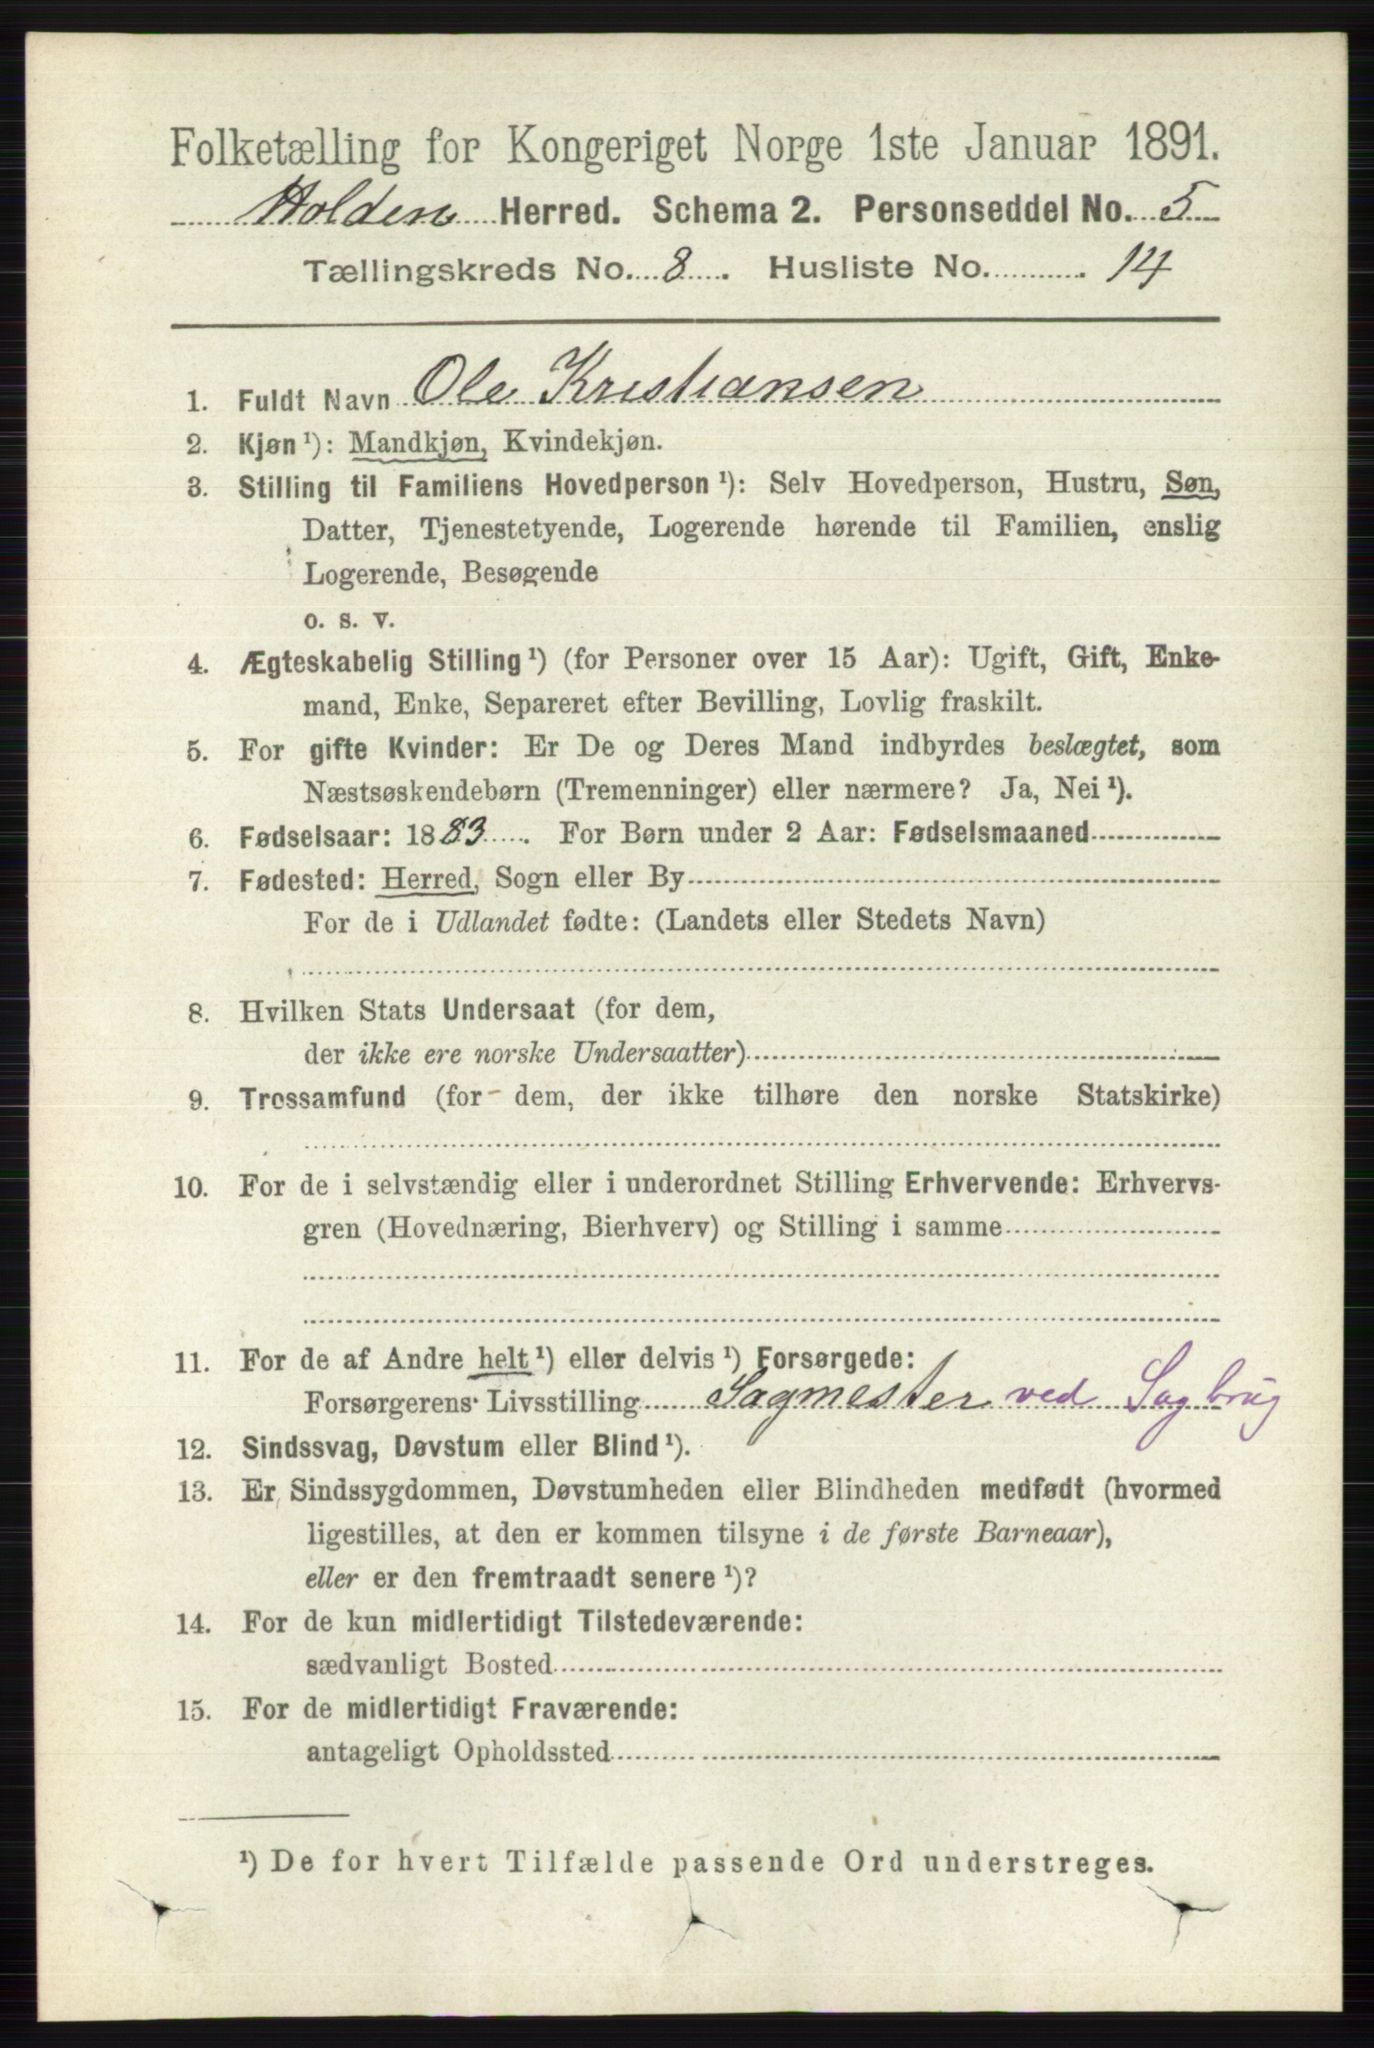 Folketælling for Kongeriget Norge 1ste Januar 1891.
Holden Herred. Schema 2. Personseddel No. 5
Tællingskreds No. 8. Husliste No. 14
1. Fuldt Navn Ole Kristiansen
2. Kjøn¹): Mandkjøn, Kvindekjøn.
3. Stilling til Familiens Hovedperson¹): Selv Hovedperson, Hustru, Søn,
Datter, Tjenestetyende, Logerende hørende til Familien, enslig
Logerende, Besøgende
o. s. v.
4. Ægteskabelig Stilling¹) (for Personer over 15 Aar): Ugift, Gift, Enke-
mand, Enke, Separeret efter Bevilling, Lovlig fraskilt.
5. For gifte Kvinder: Er De og Deres Mand indbyrdes beslægtet, som
Næstsøskendebørn (Tremenninger) eller nærmere? Ja, Nei¹).
6. Fødselsaar: 1883. For Børn under 2 Aar: Fødselsmaaned
7. Fødested: Herred, Sogn eller By
For de i Udlandet fødte: (Landets eller Stedets Navn)
8. Hvilken Stats Undersaat (for dem,
der ikke ere norske Undersaatter)
9. Trossamfund (for dem, der ikke tilhøre den norske Statskirke)
10. For de i selvstændig eller i underordnet Stilling Erhvervende: Erhvervs-
gren (Hovednæring, Bierhverv) og Stilling i samme
11. For de af Andre helt¹) eller delvis¹) Forsørgede:
Forsørgerens Livsstilling Sagmester ved Sagbrug
12. Sindssvag, Døvstum eller Blind¹).
13. Er Sindssygdommen, Døvstumheden eller Blindheden medfødt (hvormed
ligestilles, at den er kommen tilsyne i de første Barneaar),
eller er den fremtraadt senere¹)?
14. For de kun midlertidigt Tilstedeværende:
sædvanligt Bosted
15. For de midlertidigt Fraværende:
antageligt Opholdssted
¹) De for hvert Tilfælde passende Ord understreges.